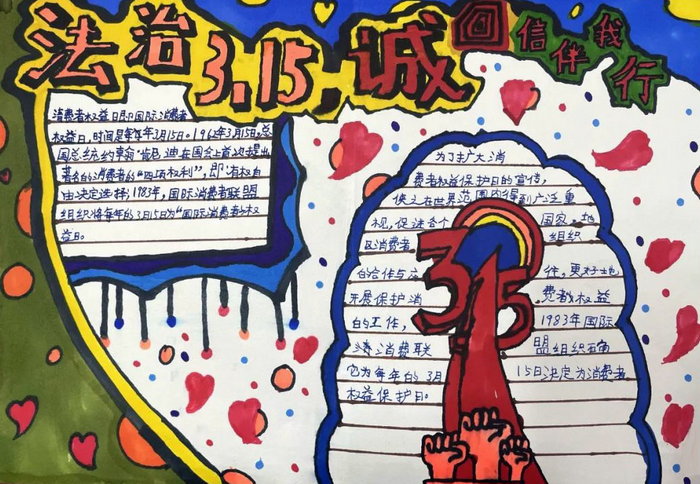 法治3.15 诚回信伴我行
消费者权益日即国际消费者
权益日,时间是每年3月15日。1962年3月15日,总
国总统约翰·肯尼迪在国会上首次提出
著名的消费者的“四项权利”,即:有权自
由决定选择;1983年,国际消费者联盟
组织将每年的3月15日为“国际消费者权
益日。
为了扩大消
费者权益保护日的宣传,
使之在世界范围内得到广泛重
视,促进各个 国家、地
区消费者 组织
的合作与 作,更好地
开展保护消 费者权益
的工作, 1983年国际
消费联 盟组织确
它为每年的3月 15日决定为消费者
权益保护日。
3.15